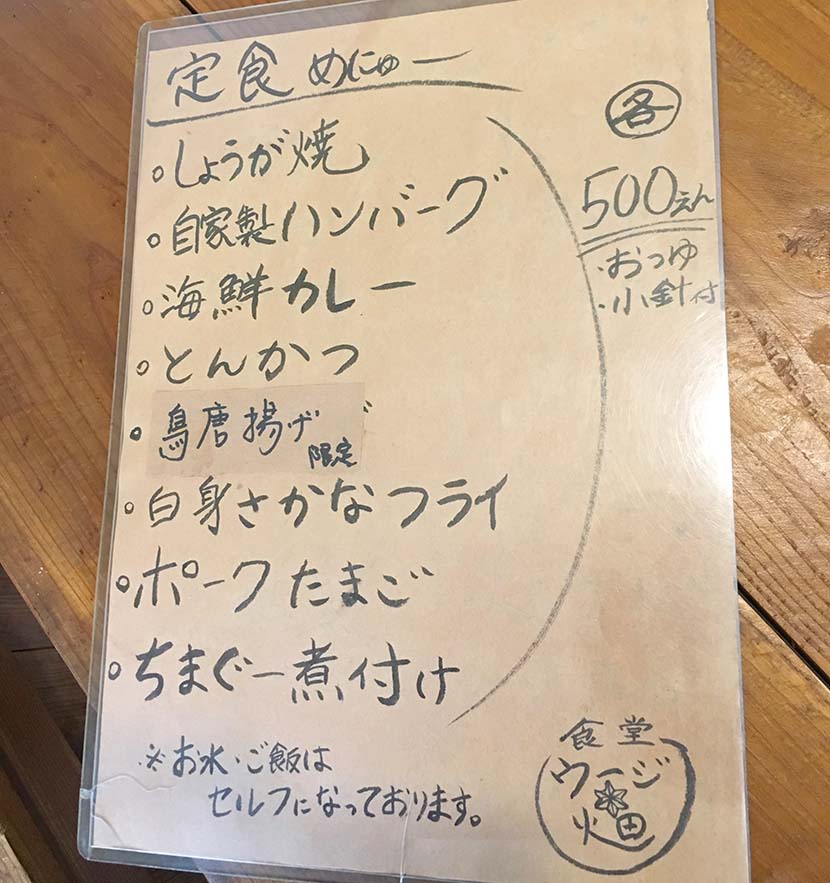 定食 めにゅー
。しょうが焼
。自家製ハンバーグ
。海鮮カレー
。とんかつ
・鳥唐揚げ
限定
。白身さかなフライ
。ポークたまご
。ちまぐー煮付け
各
500えん
・おつゆ
・小針付
※お水・ご飯は
セルフになっております。
食堂
ウージ
畑